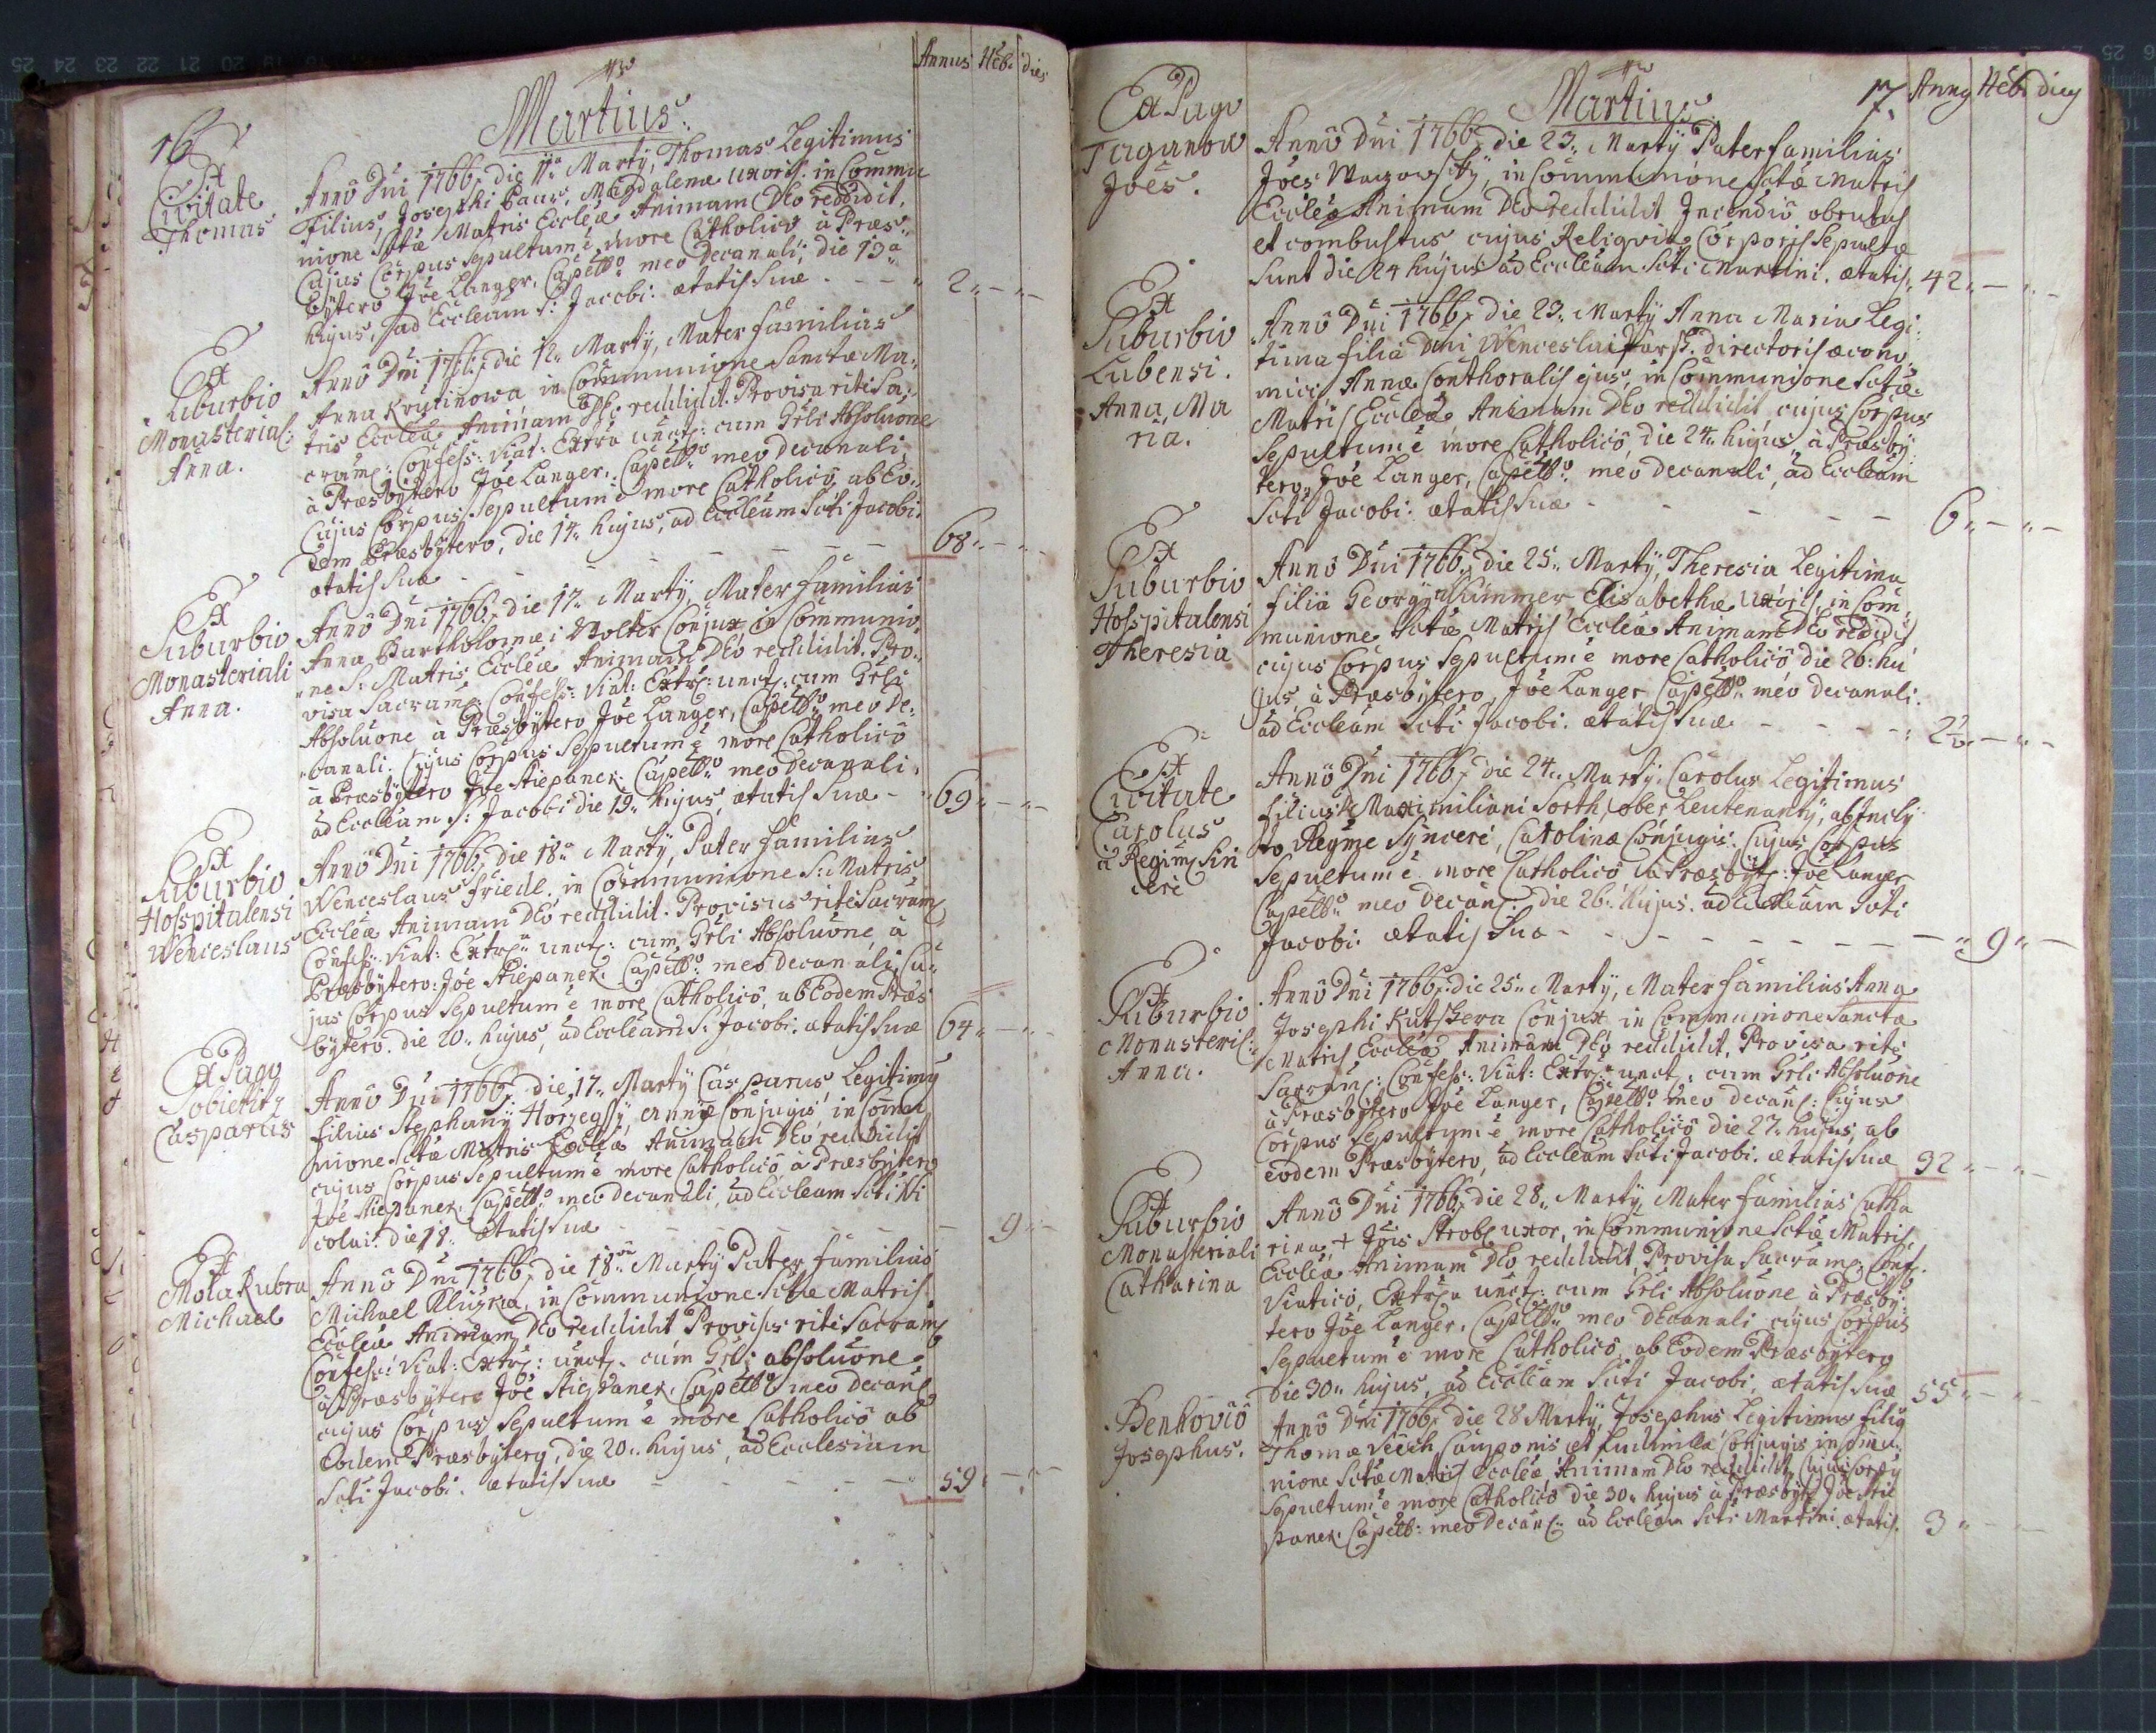 16
Martius.
Annus Heb. dies
Ex
Civitate
Thomas
Anno Dni 1766, die 11a Martÿ, Thomas Legitimus
filius, Josephi Baur, Magdalenæ uxoris: in Commu
nione Sctæ Matris Eccleæ Animam Deo reddidit,
Cujus Corpus sepultum ë more Catholico à Præs-
bÿtero Jöe Langer, Capello meo Decanali, die 13a
hujus, ad Eccleam S: Jacobi: ætatis suæ 2
Ex
Suburbio
Monasterial:
Anna.
Anno Dni 1766, die 12. Martÿ, Mater familias
Anna Krÿtinowa in Communione Sanctæ Ma-
tris Eccleæ Animam Deo reddidit. Provisa rite Sa-
cram: Confess: Viat: Extra unct: cum Grli Absoluone
à Præsbÿtero Jöe Langer. Capello meo decanali,
Cujus Corpus Sepultum ë more Catholico, ab Eo-
dem Præsbÿtero, die 14. hujus, ad Eccleam Scti Jacobi.
ætatis suæ 68
Ex
Suburbio
Monasteriali
Anna.
Anno Dni 1766, die 17. Martÿ, Mater familias
Anna Bartholomæi Wolter Conjux, in Communio-
ne S: Matris Eccleæ Animam Deo reddidit. Pro-
visa Sacram: Confess: Viat: Extr: unct: cum Grli
Absoluone à Præsbÿtero Jöe Langer, Capello meo De-
canali. Cujus Corpus Sepultum ë more Catholico
à Præsbÿtero Jöe Stiepanek. Capello meo Decanali,
ad Eccleam S: Jacobi die 19. hujus, ætatis suæ 69
Ex
Suburbio
Hosspitalensi
Wenceslaus
Anno Dni 1766, die 18a Martÿ, Pater familias
Wenceslaus Friedl. in Communione S: Matris
Eccleæ Animam Deo reddidit. Provisus rite Sacram:
Confess: Viat: Extr: unct: cum Grli Absoluone, à
Præsbÿtero: Jöe Stiepanek. Capello meo Decanali, Cu-
jus Corpus sepultum ë more Catholico, ab Eodem Præs
bÿtero. die 20. hujus, ad Eccleam S: Jacobi. ætatis suæ 64
Ex Pago
Sobietitz
Casparus
Anno Dni 1766, die 17. Martÿ Casparus, Legitimÿ
filius Stephanÿ Horzegsÿ, Annæ Conjugis, in Comu
nione Sctæ Matris Eccleæ Animam Deo reddidit
cujus Corpus Sepultum ë more Catholico à Præsbÿtero
Jöe Stiepanek, Capello meo Decanali, ad Eccleam Scti Ni
colai. die 18. ætatis suæ 9
Ex
Mola Rubra
Michael
Anno Dni 1766, die 18va Martÿ Pater familias
Michael Kluska, in Communione Sctæ Matris
Eccleæ Animam Deo reddidit Provisus rite Sacram:
Confess: Viat: Extr: unct: cum Grli absoluone
à Præsbÿtero Jöe Stiepanek. Capello meo Decan:
cujus Corpus Sepultum ë more Catholico ab
Eodem Præsbÿtero, die 20. hujus, ad Ecclesiam
Scti Jacobi. ætatis suæ 59
Martius.
17. Annÿ Heb. dieÿ
Ex Pago
Taganow
Joës.
Anno Dni 1766, die 23. Martÿ Pater familias
Joës, in Communione Sctæ Matris
Eccleæ Animam Deo reddidit Incendio obrutus
et combustus cujus Reliqviæ Corporis Sepultæ
sunt die 24 hujus ad Eccleam Scti Martini. ætatis 42
Ex
Suburbio
Lubensi.
Anna Ma
ria.
Anno Dni 1766, die 23. Martÿ Anna Maria Legi-
tima filia Dni Wenceslai Directoris æcono-
mici, Annæ Conthoralis ejus, in Communione Sctæ
Matris Eccleæ Animam Deo reddidit, cujus Corpus
Sepultum ë more Catholico, die 24. hujus, à Præsbÿ-
tero, Jöe Langer, Capello meo Decanali, ad Eccleam
Scti Jacobi: ætatis suæ 6
Ex
Suburbio
Hosspitalensi
Theresia
Anno Dni 1766, die 25. Martÿ, Theresia Legitima
filia Georgÿ Kümmer Elisabethæ Uxoris, in Com-
munione Sctæ Matris Eccleæ Animam Deo redidit
cujus Corpus Sepultum ë more Catholico die 26. hu
jus, à Præsbÿtero, Jöe Langer Capello meo Decanali.
ad Eccleam Scti Jacobi. ætatis suæ 2½
Ex
Civitate
Carolus
à Regim: Sin
cere
Anno Dni 1766, die 24. Martÿ. Carolus Legitimus
filius Maximiliani Sorth, ober Leutenantÿ, ab Incly
to Regime Sÿncere, Carolinæ Conjugis. Cujus Corpus
Sepultum ë more Catholico à Præsbÿt: Jöe Langer
Capello meo Decan: die 26. hujus. ad Eccleam Scti
Jacobi. ætatis Sua 9
Ex
Suburbio
Monasteril:
Anna.
Anno Dni 1766, die 25. Martÿ, Mater familias Anna
Josephi Kutshera Conjux in Communione Sancta
Matris Eccleæ Animam Deo reddidit, Provisa rite
Sacram: Confess: Viat: Extr: unct: cum Grli Absoluone
à Præsbÿtero Jöe Langer, Capello meo Decan: Cujus
Corpus Sepultum ë more Catholico die 27. hujus, ab
eodem Præsbÿtero, ad Eccleam Scti Jacobi. ætatis suæ 32
Ex
Suburbio
Monasteriali
Catharina
Anno Dni 1766, die 28. Martÿ, Mater familias Catha
rina, + Jöis Strobl uxor, in Communione Sctæ Matris,
Eccleæ Animam Deo reddidit, Provisa Sacram: Conf:
Viatico, Extra unct: cum Grli Absoluone à Præsbÿ-
tero Jöe Langer. Capello meo Decanali cujus Corpus
Sepultum ë more Catholico, ab Eodem Præsbÿtero
Die 30. hujus, ad Eccleam Scti Jacobi, ætatis suæ 55
Benkovio
Josephus.
Anno Dni 1766, die 28 Martÿ, Josephus Legitimus filiÿ
Thomæ Cauponis et Ludmillæ Conjugis in Comu-
nione Sctæ Matris Eccleæ, Animam Deo reddidit, Cujus Corpÿ
Sepultum ë more Catholico die 30. hujus à Præsbÿt: Jöe Stie
panek. Capell: meo Decan: ad Eccleam Scti Martini. ætatis. 3